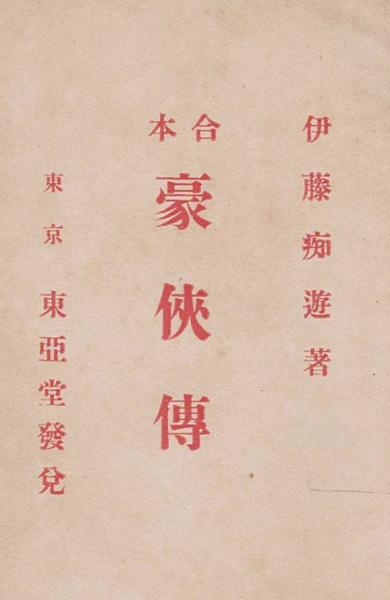 伊藤痴遊著
合本
豪俠傳
東京 東亞堂發兌